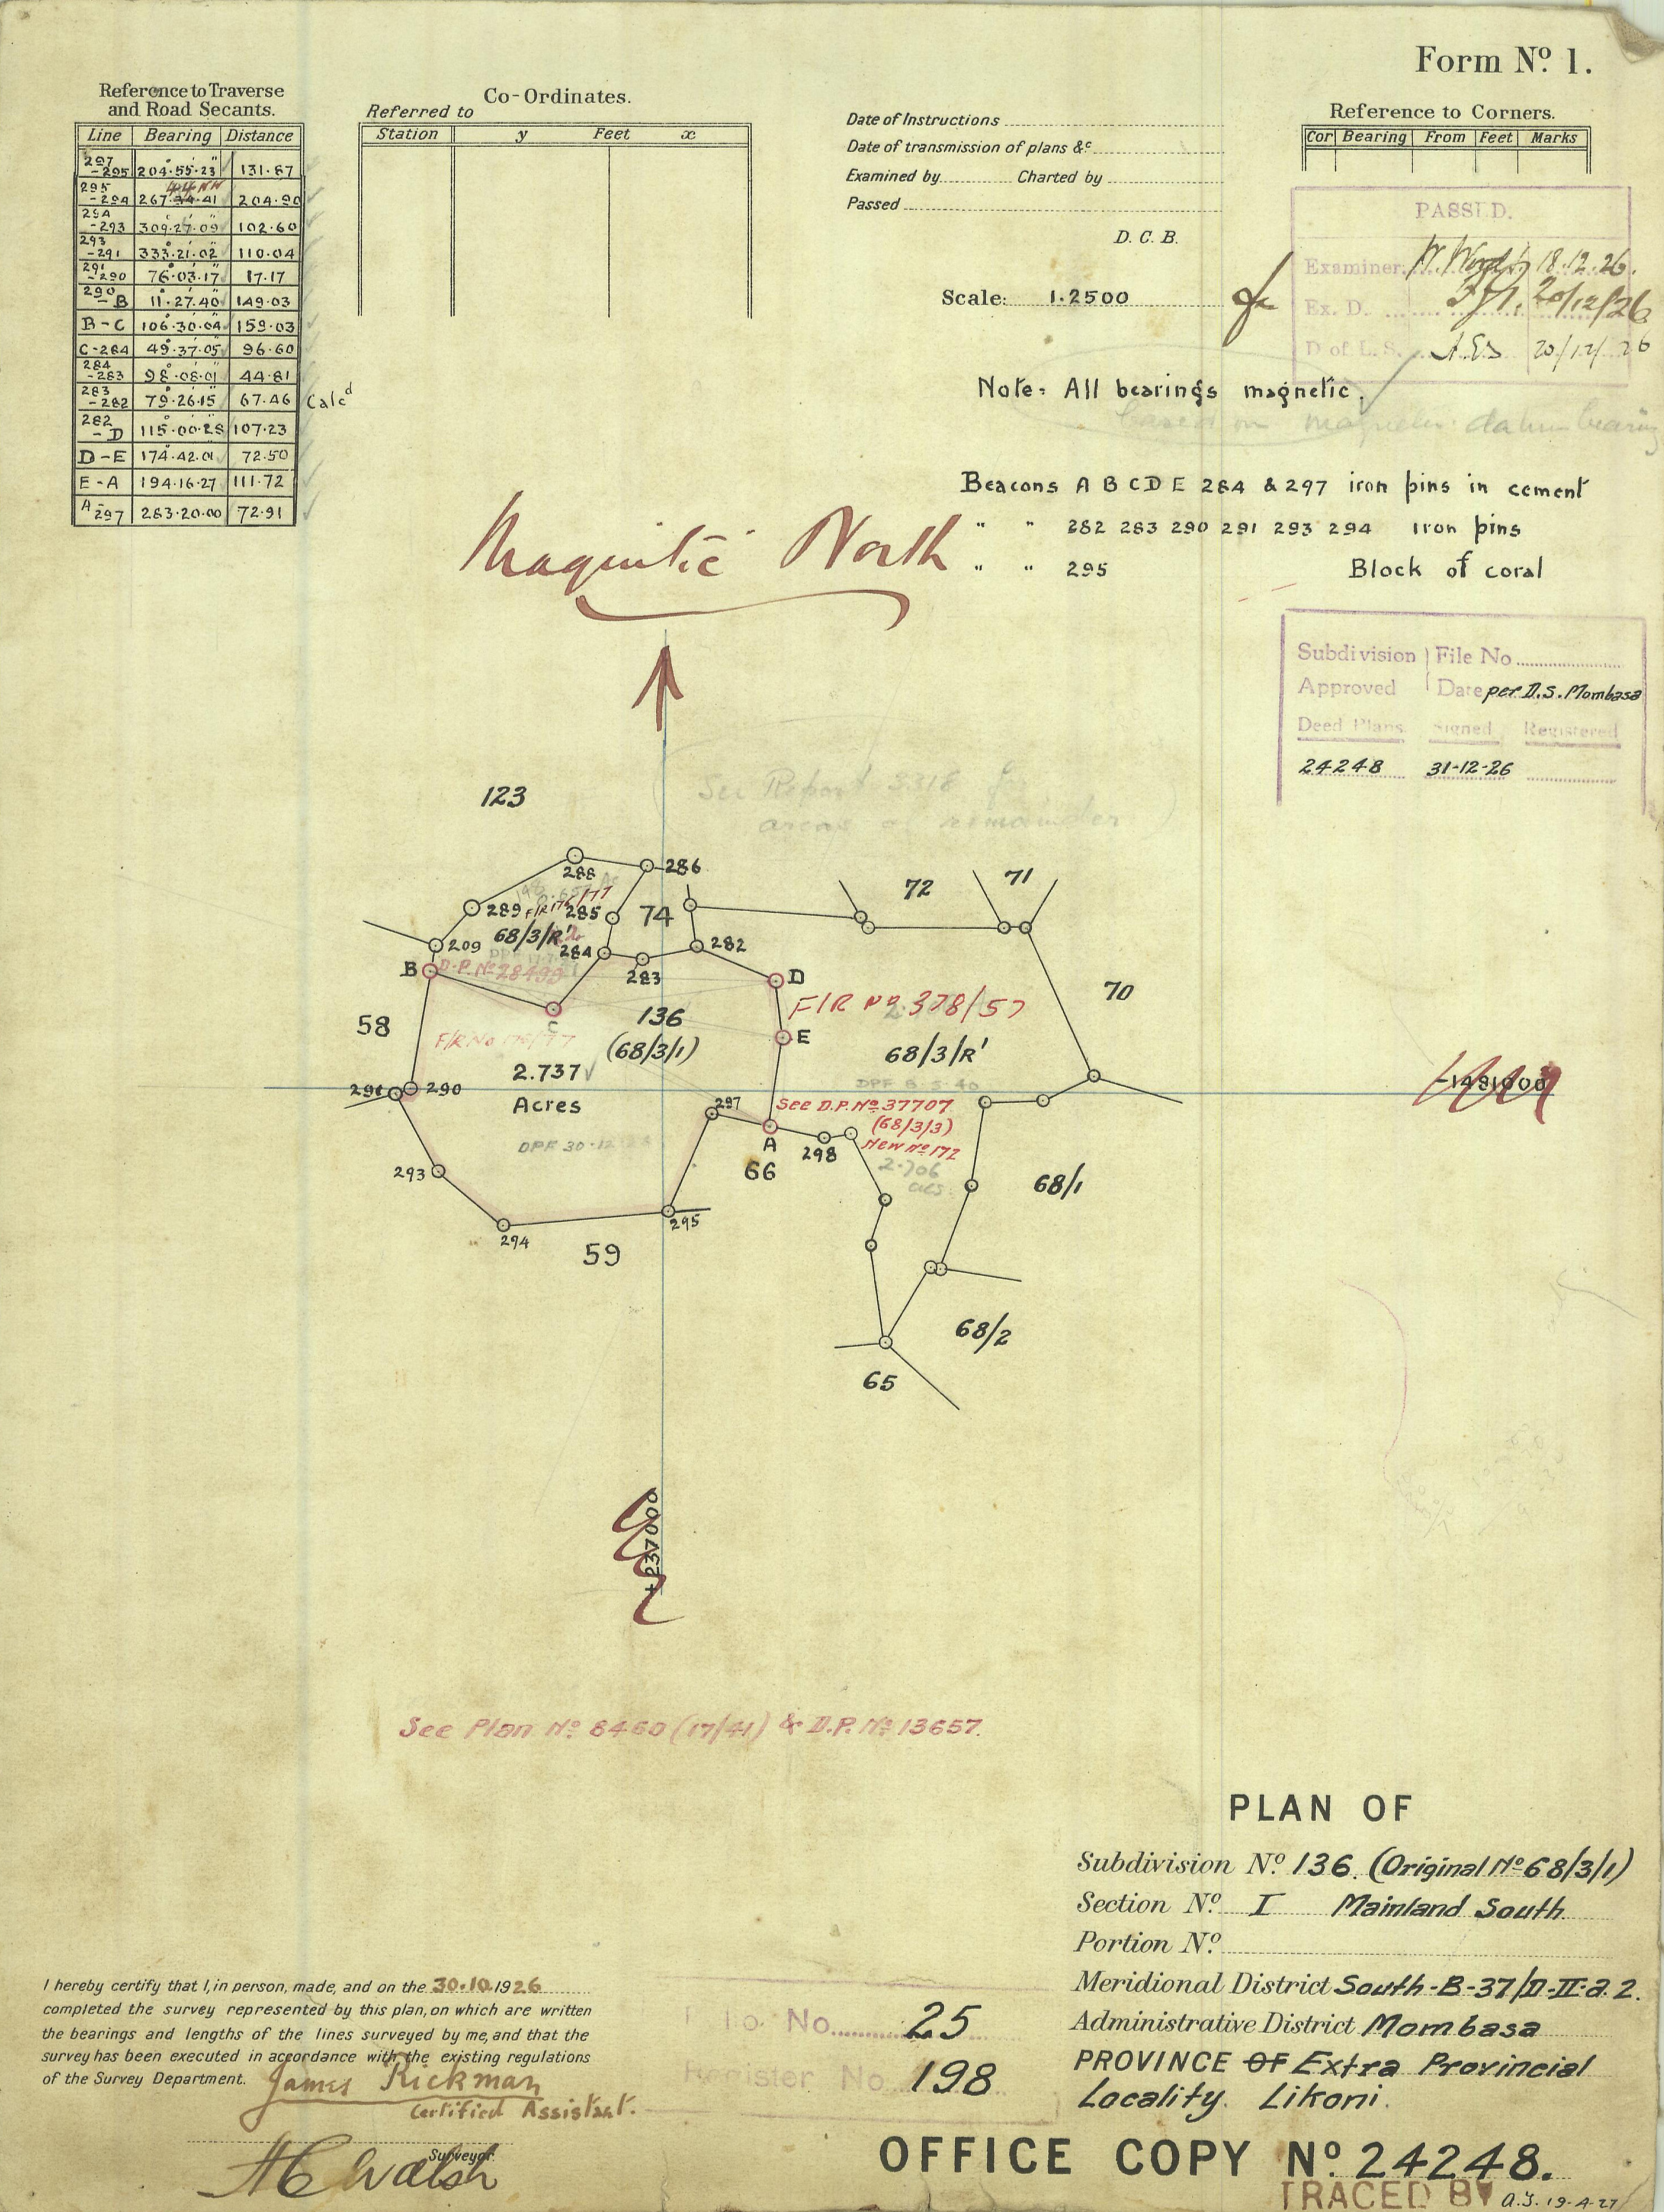 Form No. 1.
Reference to Traverse
and Road Secants.
Line Bearing Distance
297-295 204°.55'.23" 131.87
295-294 267.44.41 204.90
294-293 309.27.09 102.60
293-291 333.21.02 110.04
291-290 76.03.17 17.17
290-B 11.27.40 149.03
B-C 106.30.04 159.03
C-284 49.37.05 96.60
284-283 98.08.01 44.81
283-282 79.26.15 67.46 Calcd
282-D 115.00.28 107.23
D-E 174.42.01 72.50
E-A 194.16.27 111.72
A-297 283.20.00 72.91
Co-Ordinates.
Referred to
Station y Feet x
Date of Instructions
Date of transmission of plans &c
Examined by Charted by
Passed
D. C. B.
Scale: 1.2500
Reference to Corners.
Cor Bearing From Feet Marks
PASSED.
Examiner 18.12.26.
Ex. D. 20/12/26
D of L. S. 20/12/26
Note: All bearings magnetic.
based on magnetic datum bearing
Beacons A B C D E 284 & 297 iron pins in cement
" " 282 283 290 291 293 294 Iron pins
" " 295 Block of coral
Magnitic North
Subdivision File No
Approved Date per D.S. Mombasa
Deed Plans Signed Registered
24248 31-12-26
See Report 3318 for
areas of remainder
123
288
286
289
285
74
72
71
209
68/3/R'
284
283
282
B
D.P. No 28499
C
D
F/R No. 378/57
70
58
136
(68/3/1)
E
68/3/R'
2.737
Acres
DPF 8.5.40
291
290
297
See D.P. No 37707
(68/3/3)
New No 172
-1491000
A
298
66
2.706
acs.
DPF 30-12
293
68/1
294
295
59
68/2
65
+237000
See Plan No 8460 (17/41) & D.P. No 13657.
PLAN OF
Subdivision No. 136. (Original No 68/3/1)
Section No. I Mainland South
Portion No.
Meridional District South-B-37/D-II-a.2.
Administrative District Mombasa
PROVINCE OF Extra Provincial
Locality. Likoni.
I hereby certify that I, in person, made, and on the 30.10.1926
completed the survey represented by this plan, on which are written
the bearings and lengths of the lines surveyed by me, and that the
survey has been executed in accordance with the existing regulations
of the Survey Department.
James Rickman
Certified Assistant.
Surveyor
A C Walsh
No. 25
Register No 198
OFFICE COPY No. 24248.
TRACED BY a.J. 19-4-27